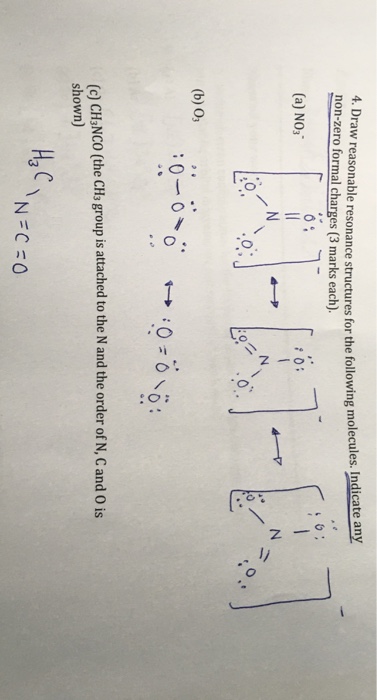 4. Draw reasonable resonance structures for the following molecules. Indicate any
non-zero formal charges (3 marks each).
(a) NO₃⁻
[:Ö: || N :Ö: :Ö:]⁻ ↔ [:Ö: | N :Ö: :Ö:]⁻ ↔ [:Ö: | N :Ö: :Ö:]⁻
(b) O₃
:Ö-Ö=Ö ↔ :Ö=Ö-Ö:
(c) CH3NCO (the CH3 group is attached to the N and the order of N, C and O is
shown)
H₃C\N=C=O